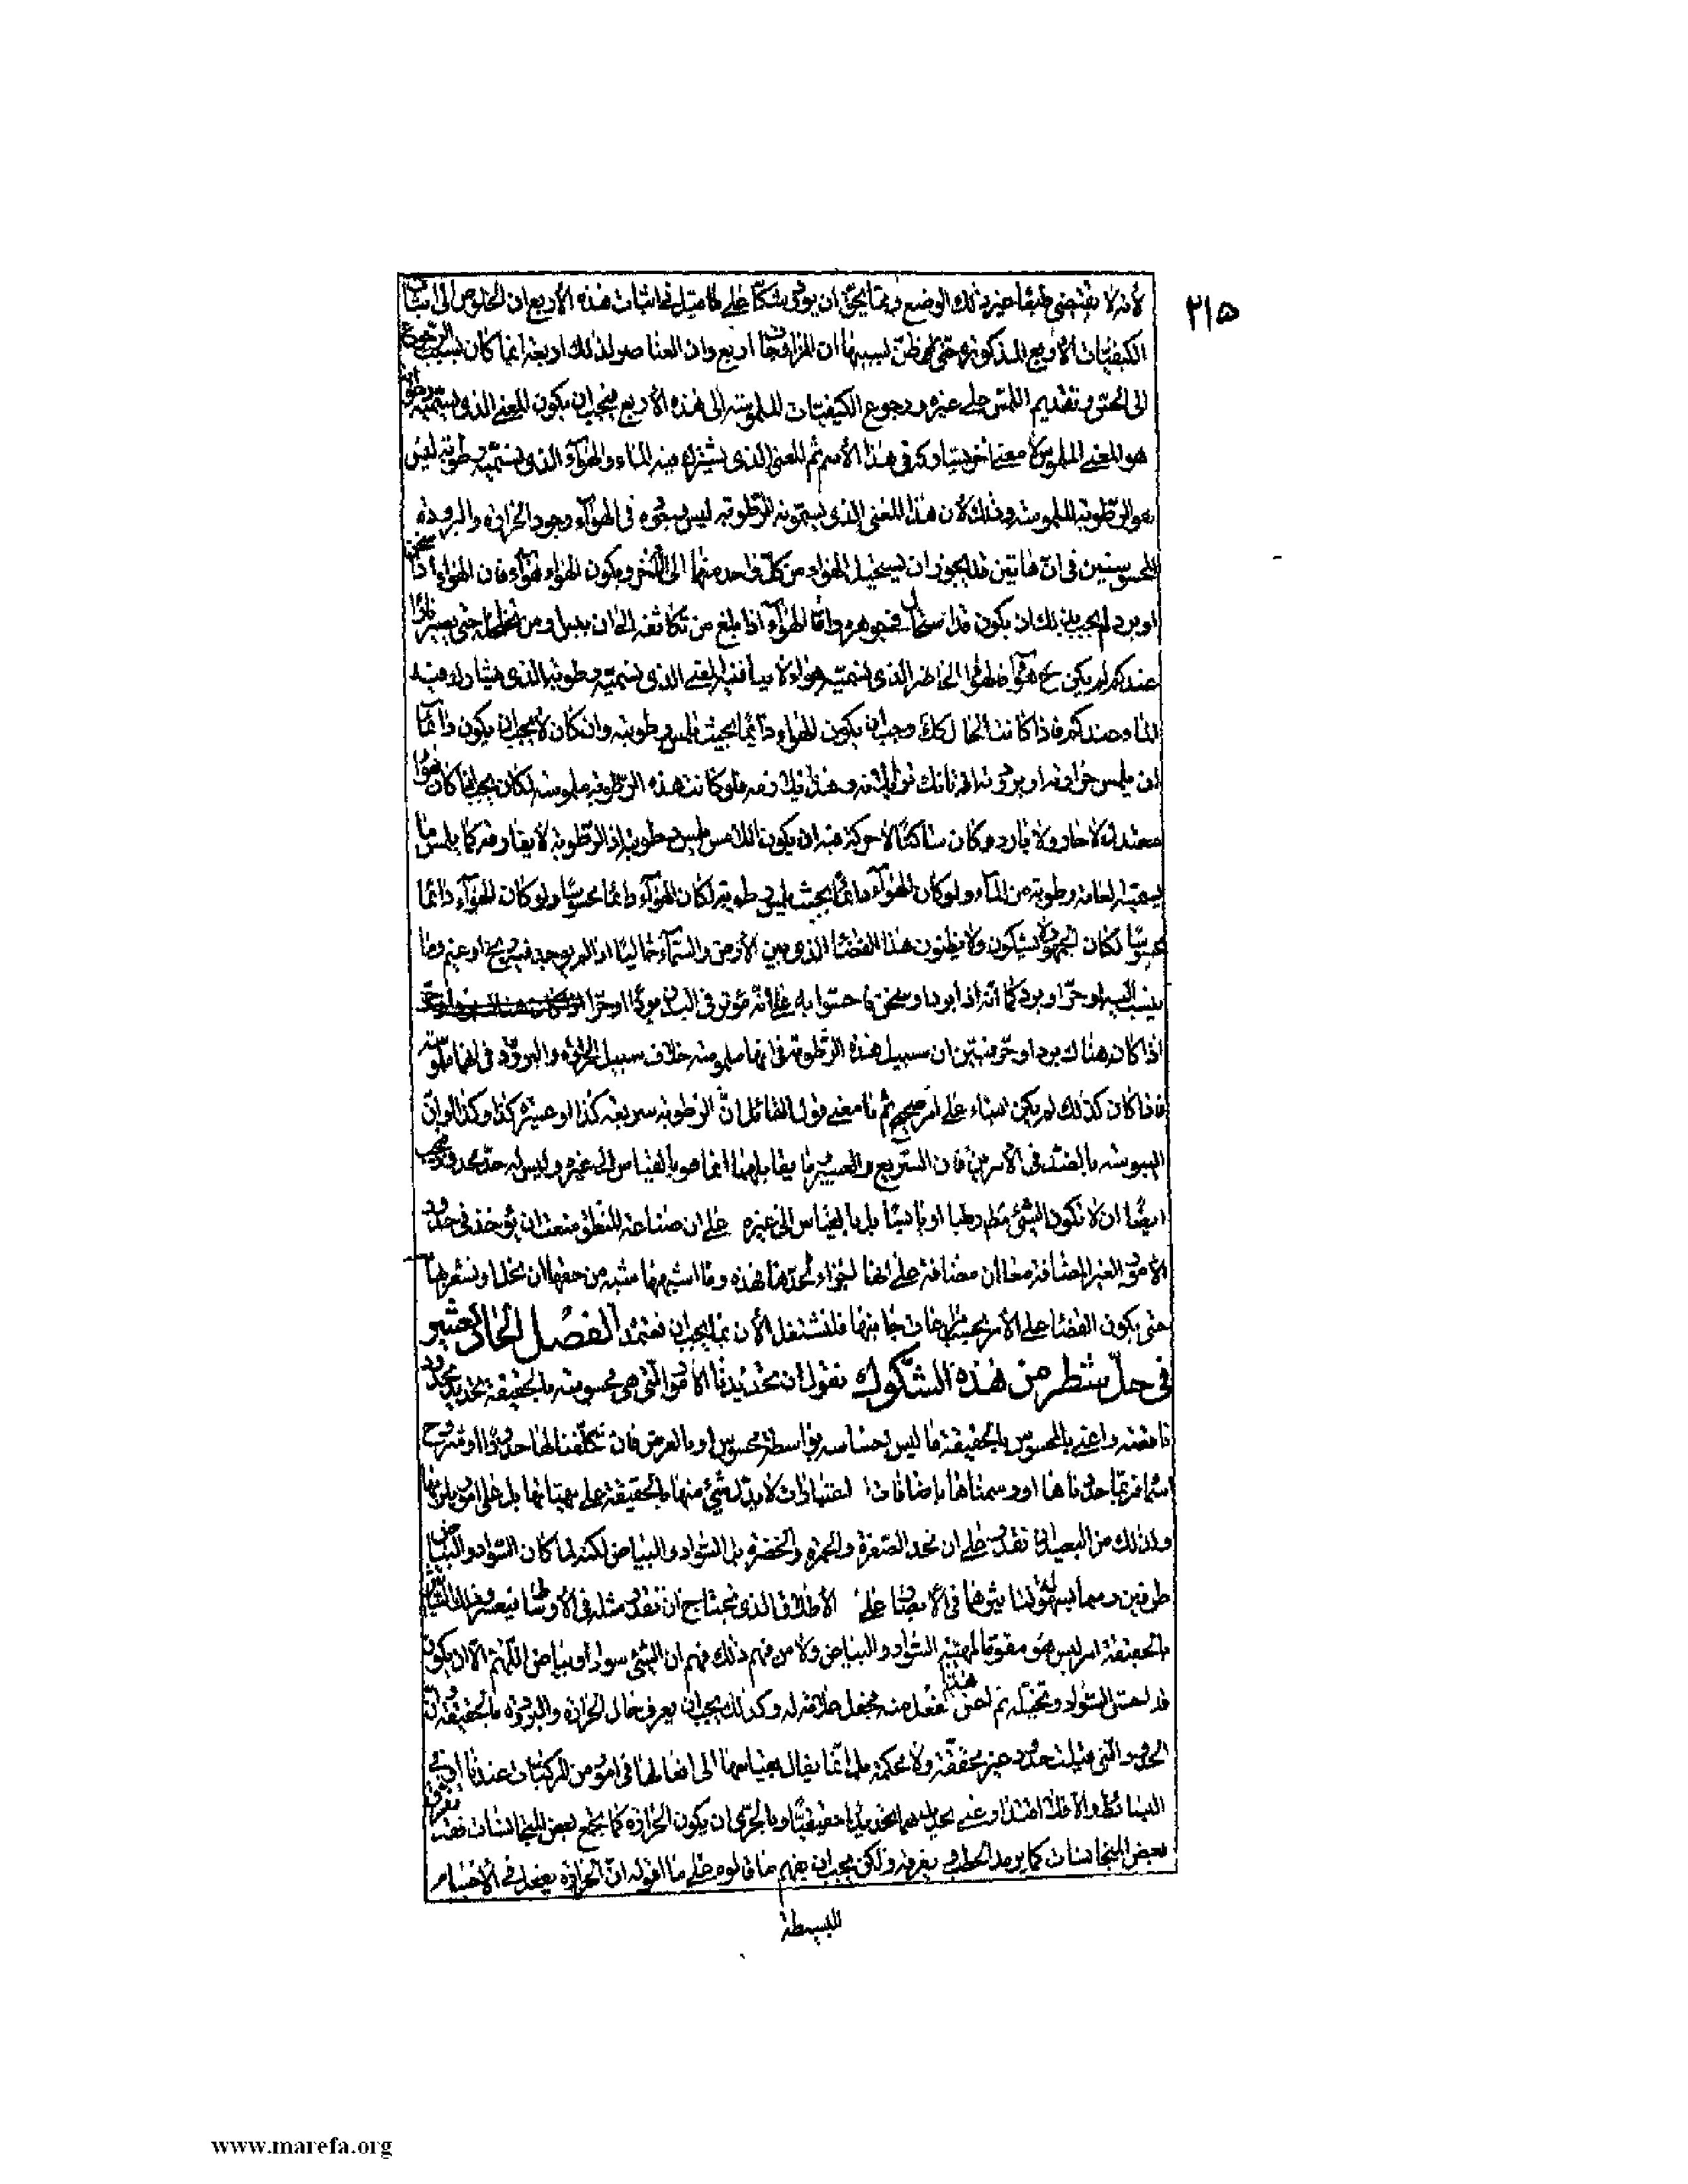 ٢١٥
لأنه لا يقتضى طبعا غير ذلك الوضع ومما يحق ان يورد شكا على ما قيل فى اثبات هذه الأربع ان الخلوص الى اثبات
الكيفيات الأربع المذكورة حتى يظن بسببها ان المزاوجات اربع وان العناصر لذلك اربعة انما كان بسبب الرجوع
الى الحس وتقديم اللمس على غيره ورجوع الكيفيات الملموسة الى هذه الأربع فيجب ان يكون المعنى الذى يسميه رطوبة
هو المعنى الملموس لا معنى اخر يشاركه فى هذا الأسم ثم المعنى الذى يشترك فيه الماء والهواء الذى يسميه رطوبة ليس
هو الرطوبة الملموسة وذلك لأن هذا المعنى الذى يسمونه الرطوبة ليس وجوده فى الهواء وجود الحرارة والبرودة
المحسوستين فى ان هاتين قد يجوز ان يستحيل الهواء من كل واحد منهما الى الأخر ويكون الهواء هواء فان الهواء اذا سخن
او برد لم يجب من ذلك ان يكون قد استحال فى جوهره واما الهواء اذا بلغ من تكاثفه الى ان يبل ومن تخلخله حتى يصير نارا
عندكم لم يكن ح هواء فالهواء الحاضر الذى نسميه هواء لا يفارقه المعنى الذى نسميه رطوبة الذى يشاركه فيه
الماء عندكم فاذا كانت الحال كك وجب ان يكون الهواء دائما بحيث يلمس رطوبته وان كان لا يجب ان يكون دائما
ان يلمس حرارته او برودته
معتدلا لا حار ولا بارد وكان ساكنا لا حركة فيه ان يكون اللامس يلمس رطوبته اذ الرطوبة لا يفارقه كما يلمس ما
يسميه العامة رطوبة من الماء ولو كان الهواء دائما بحيث يلمس رطوبته لكان الهواء دائما محسوسا ولو كان الهواء دائما
محسوسا لكان الجمهور لا يشكون ولا يظنون هذا الفضاء الذى بين الأرض والسماء خاليا اذا لم يوجد فيه ريح او غيم
او حر او برد كما انه اذا برد او سخن احسوا به على انه مؤثر فى البدن بردا او حرا
اذا كان هناك برد او حر فتبين ان سبيل هذه الرطوبة فى انها ملموسة خلاف سبيل الحرارة والبرودة فى انها ملموسة
فاذا كان كذلك لم يكن البناء على امر صحيح ثم ما معنى قول القائل ان الرطوبة سريعة كذا او عسرة كذا وكذا وان
اليبوسة بالضد فى الأمرين فان السريع والعسير وما يقابلهما انما هو بالقياس الى غيره وليس له حد محدود فيجب
ايضا ان لا يكون الشئ مطلقا رطبا او يابسا بل بالقياس الى غيره على ان صناعة المنطق منعت ان يؤخذ فى حدود
الأمور الغير المضافة معان مضافة على انها اجزاء لحدها فهذه وما اشبهها شبه من حقها ان تحل او نشعر بها
حتى يكون القضاء على الأمر بحسب مراعات جانبها فلنشتغل الأن بما يجب ان نعتمد الفصل الحادى عشر
فى حل شطر من هذه الشكوك نقول ان تحديدنا الأمور التى هى محسوسة بالحقيقة تحديد بحدود
ناقصة واعنى بالمحسوس بالحقيقة ما ليس احساسه بواسطة محسوس او بالعرض فان تكلفنا لها حدودا او شروح
اسماء فربما حددناها او رسمناها باضافات واعتبارات لا يدل شئ منها بالحقيقة على مهياتها بل على امور يلزمها
ولذلك من البعيد ان نقدر على ان نحد الصفرة والحمرة والخضرة بل السواد والبياض لكنه لما كان السواد والبياض
طرفين ومما يسهل لنا تأثيرهما فى الأبصار على الأطلاق الذى نحتاج ان نقدر مثله فى الأوساط فيعسر وذلك التأثير
بالحقيقة امر ليس هو مقوما لمهية السواد والبياض ولا من فهم ذلك فهم ان الشئ سواد او بياض اللهم الا ان يكون
قد احس السواد وتخيله ثم احس هذا الفعل منه فجعل علامة له وكذلك يجب ان يعرف حال الحرارة والبرودة بالحقيقة وان
الحدود التى قيلت حدود غير محققة ولا محكمة بل انما يقال بقياسها الى افعالها فى امور من المركبات عندنا
البسائط والا فلا اقتدار على تحديدهما تحديدا حقيقيا وبالحرى ان يكون الحرارة كما يجمع بعض المتجانسات فقد تفرق
بعض المتجانسات كما يرمد الحطب ويفرقه ولكن يجب ان يفهم ما قالوه على ما اقوله ان الحرارة يفعل فى الأجسام
البسيطة
www.marefa.org